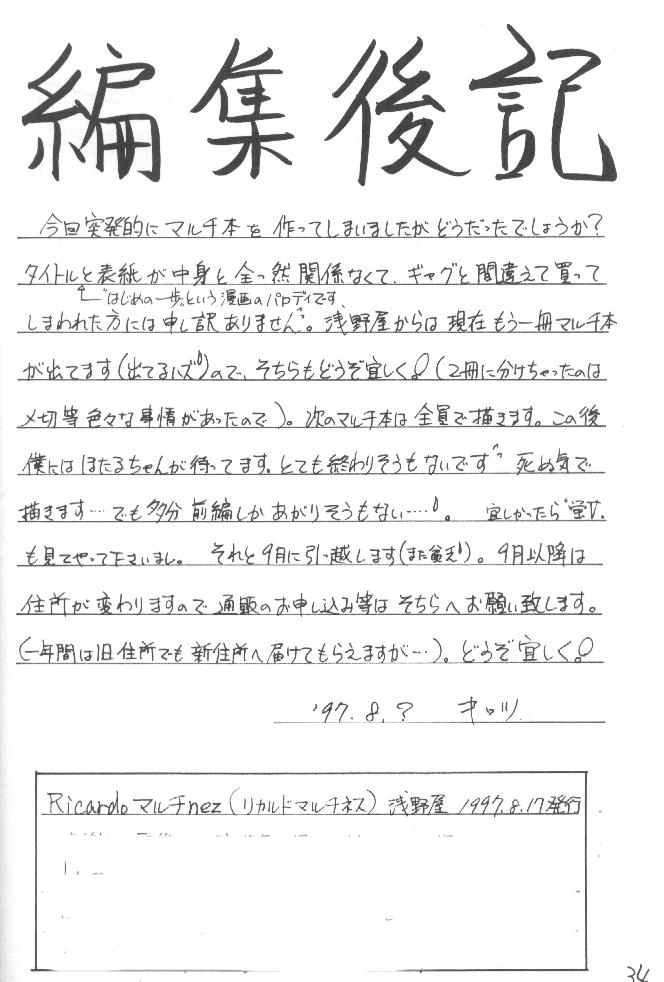 編集後記
今回突発的にマルチ本を作ってしまいましたがどうだったでしょうか?
タイトルと表紙が中身と全っ然関係なくて、ギャグと間違えて買って
"はじめの一歩"という漫画のパロディです、
しまわれた方には申し訳ありません。浅野屋からは現在もう一冊マルチ本
が出てます(出てるハズ)ので、そちらもどうぞ宜しく!(2冊に分けちゃったのは
〆切等色々な事情があったので)。次のマルチ本は全員で描きます。この後
僕にはほたるちゃんが待ってます。とても終わりそうもないです 死ぬ気で
描きます…でも多分前編しかあがりそうもない…。 宜しかったら"蛍Ⅳ"
も見てやって下さいまし。 それと9月に引っ越します(また貧乏)。9月以降は
住所が変わりますので通販のお申し込み等はそちらへお願い致します。
(一年間は旧住所でも新住所へ届けてもらえますが…)。どうぞ宜しく。!
'97.8.? キロツ
Ricardoマルチnez(リカルドマルチネス)浅野屋 1997.8.17発行
34